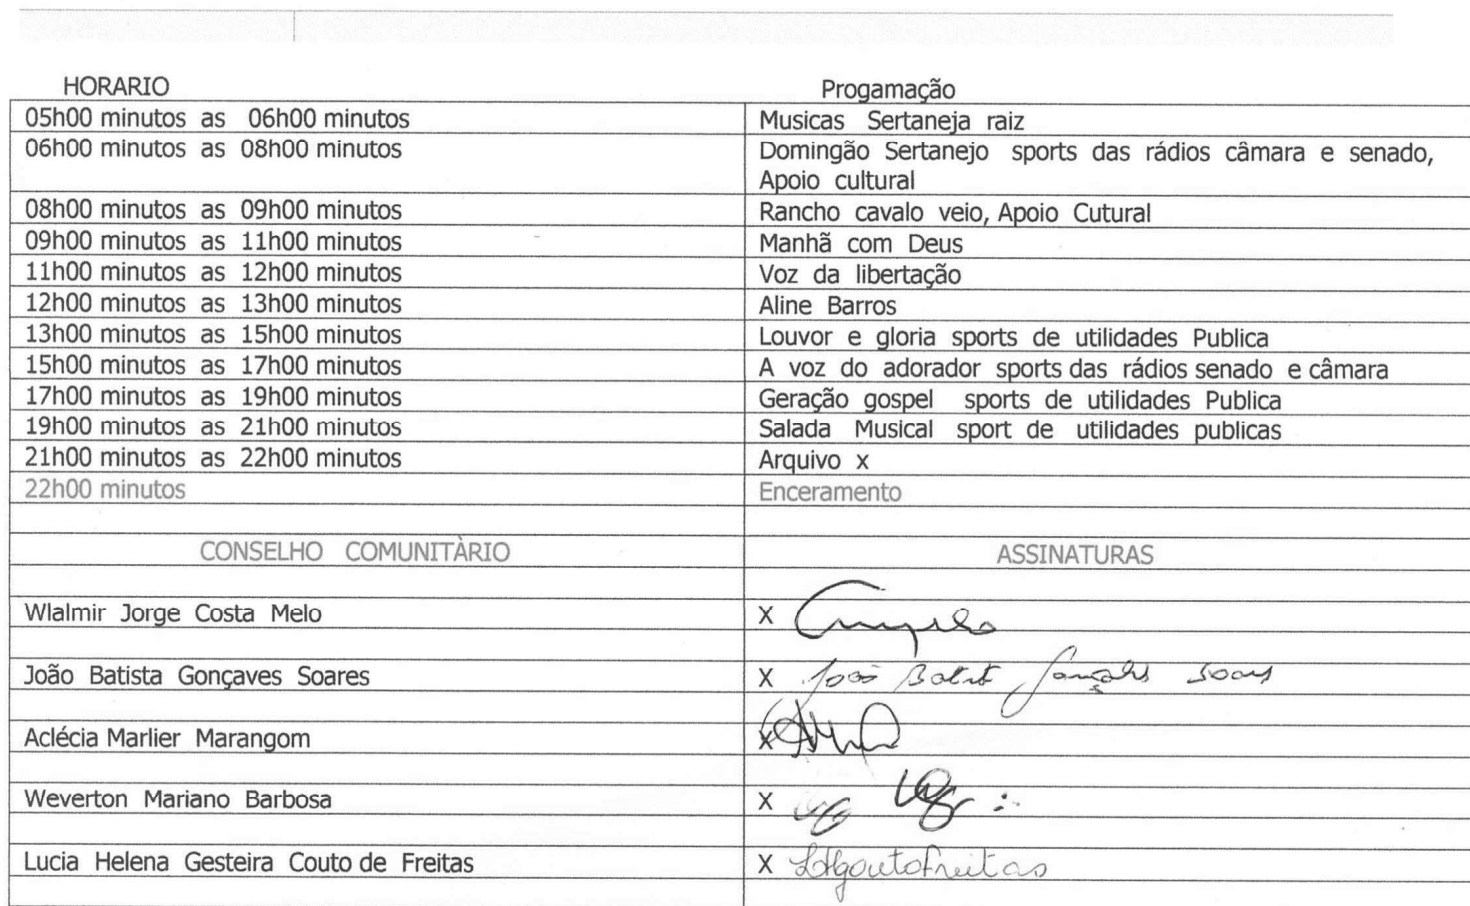 HORARIO Progamação
05h00 minutos as 06h00 minutos Musicas Sertaneja raiz
06h00 minutos as 08h00 minutos Domingão Sertanejo sports das rádios câmara e senado,
Apoio cultural
08h00 minutos as 09h00 minutos Rancho cavalo veio, Apoio Cutural
09h00 minutos as 11h00 minutos Manhã com Deus
11h00 minutos as 12h00 minutos Voz da libertação
12h00 minutos as 13h00 minutos Aline Barros
13h00 minutos as 15h00 minutos Louvor e gloria sports de utilidades Publica
15h00 minutos as 17h00 minutos A voz do adorador sports das rádios senado e câmara
17h00 minutos as 19h00 minutos Geração gospel sports de utilidades Publica
19h00 minutos as 21h00 minutos Salada Musical sport de utilidades publicas
21h00 minutos as 22h00 minutos Arquivo x
22h00 minutos Enceramento
CONSELHO COMUNITÀRIO ASSINATURAS
Wlalmir Jorge Costa Melo X
João Batista Gonçaves Soares X João Batist Gonçalves Soares
Aclécia Marlier Marangom X
Weverton Mariano Barbosa X
Lucia Helena Gesteira Couto de Freitas X LHgcoutofreitas